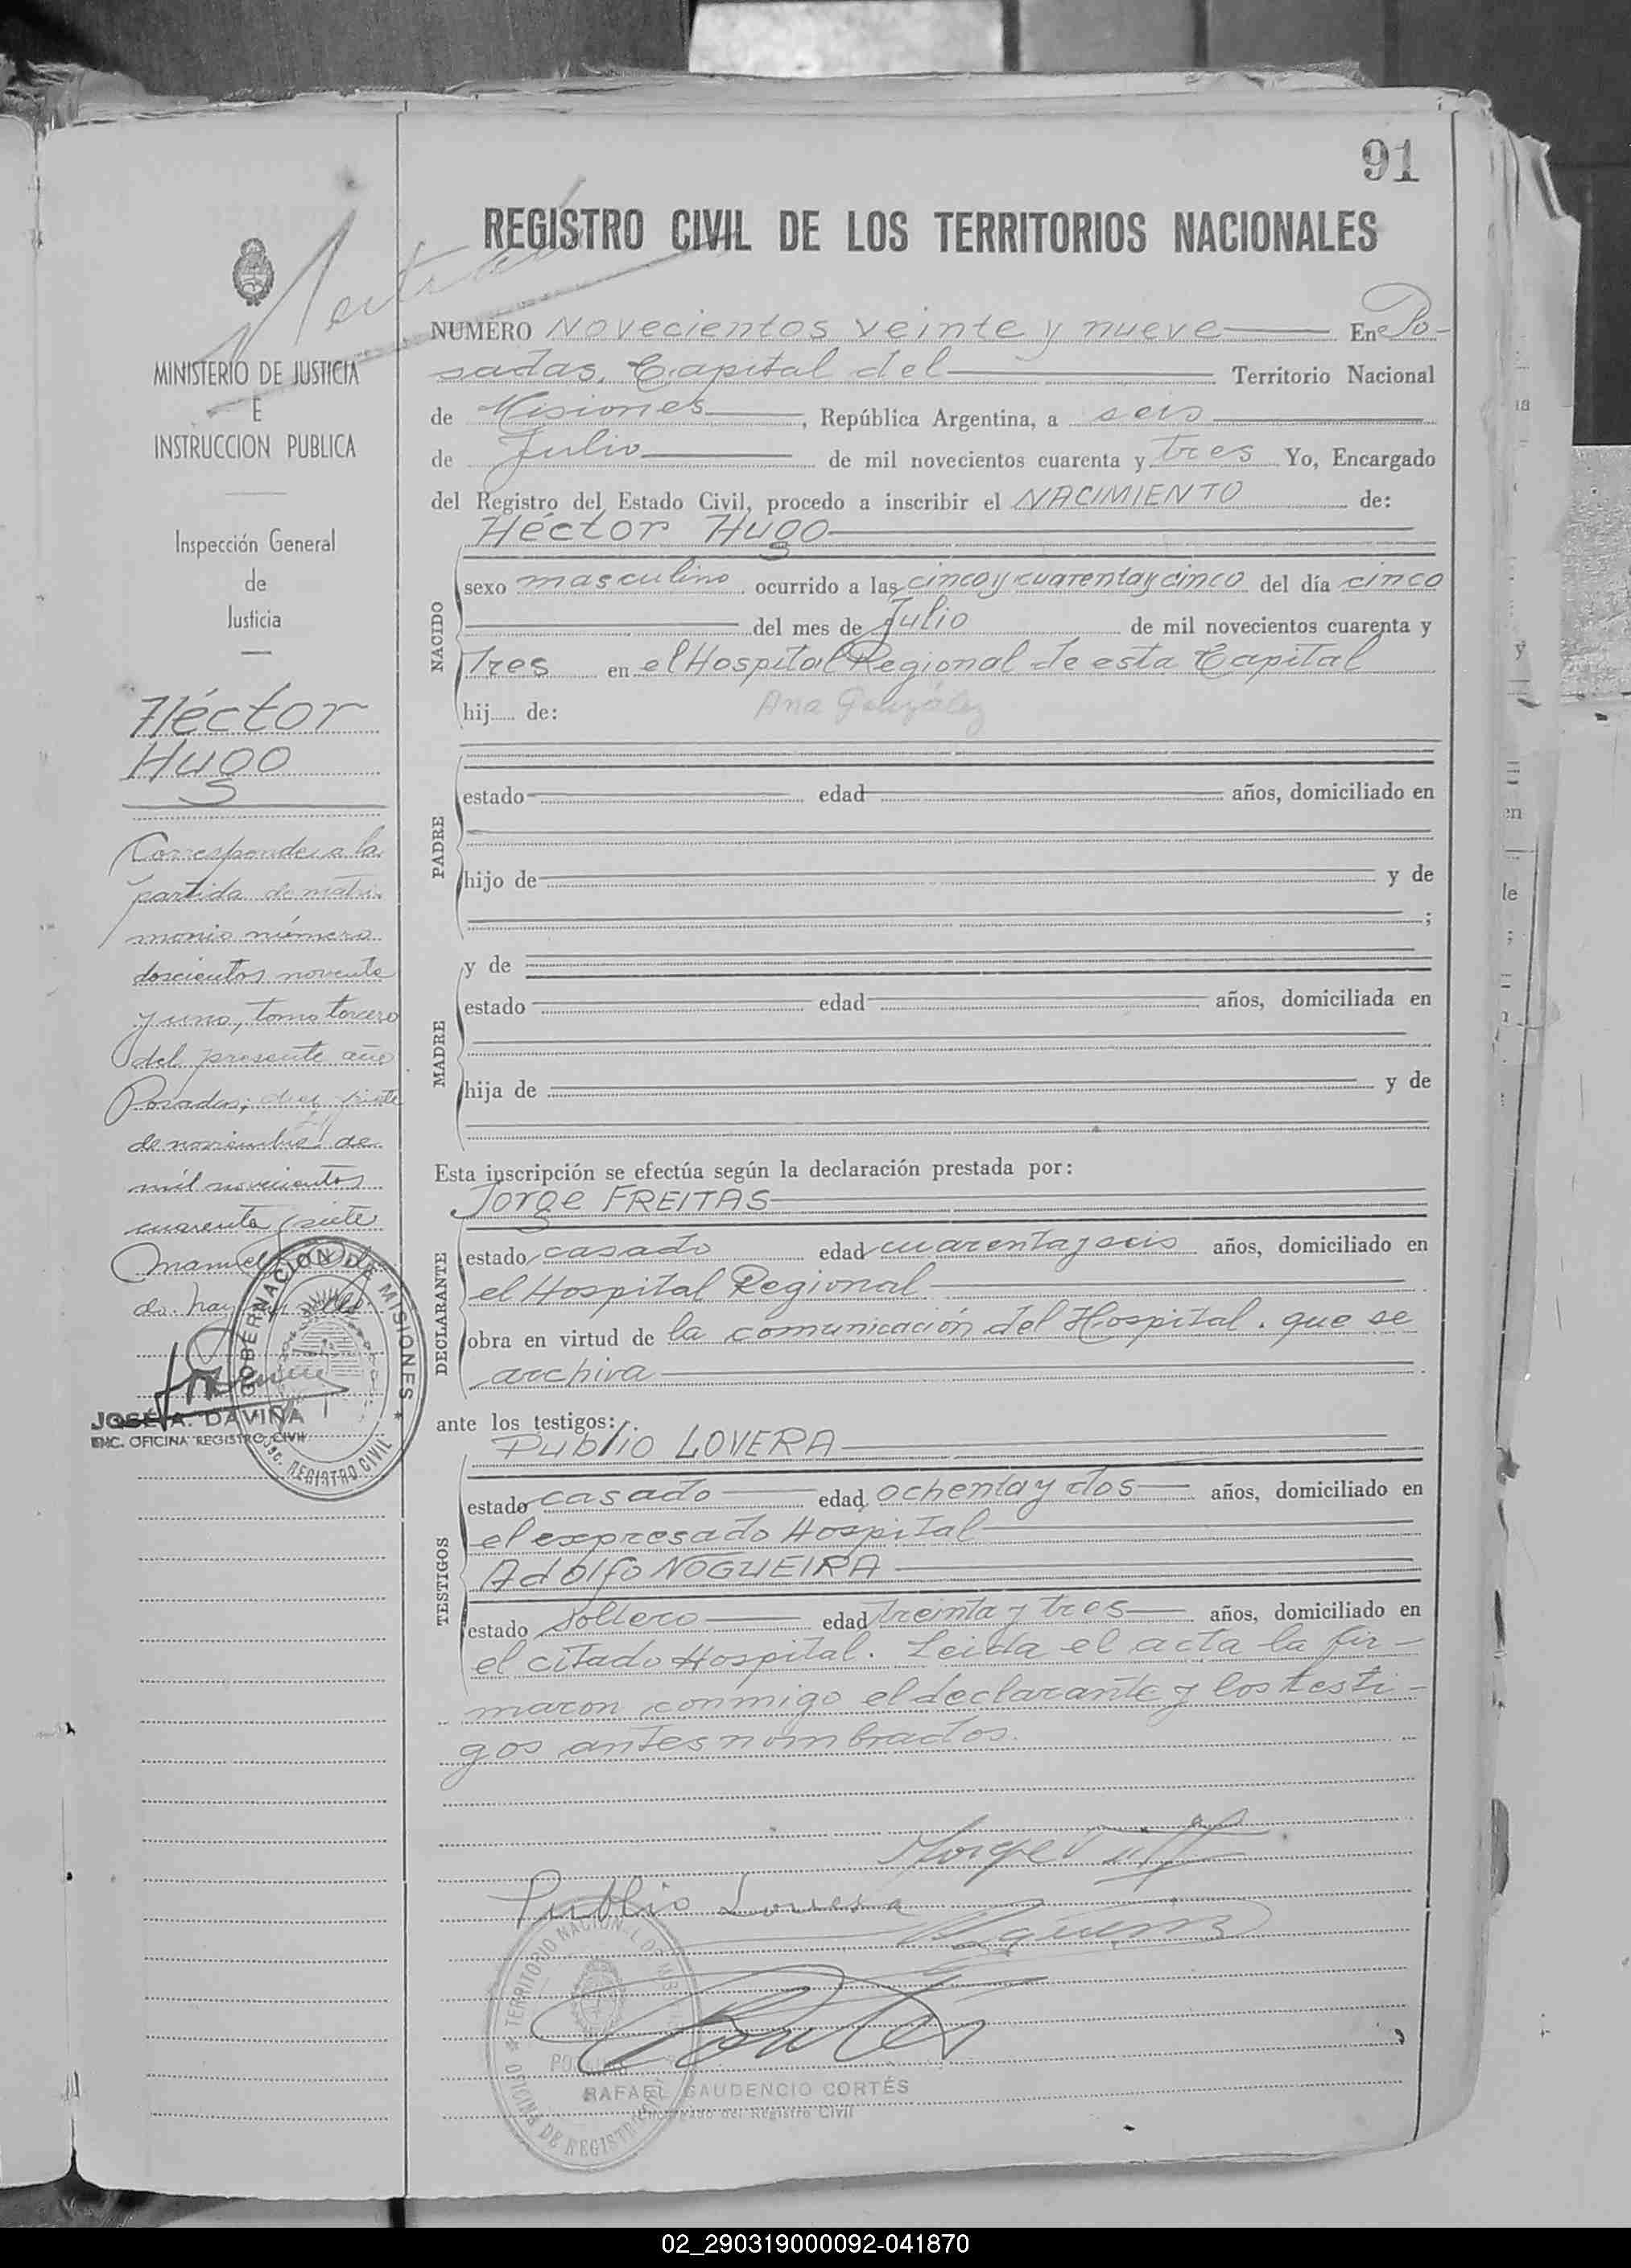 91
REGISTRO CIVIL DE LOS TERRITORIOS NACIONALES
NUMERO Novecientos veinte y nueve En Po-
sadas, Capital del Territorio Nacional
de Misiones, República Argentina, a seis
de Julio de mil novecientos cuarenta y tres Yo, Encargado
del Registro del Estado Civil, procedo a inscribir el NACIMIENTO de:
Héctor Hugo
NACIDO
sexo masculino ocurrido a las cinco y cuarenta y cinco del día cinco
del mes de Julio de mil novecientos cuarenta y
Tres en el Hospital Regional de esta Capital
hij de: Ana González
PADRE
estado edad años, domiciliado en
hijo de y de
;
MADRE
y de
estado edad años, domiciliada en
hija de y de
Esta inscripción se efectúa según la declaración prestada por:
Jorge FREITAS
DECLARANTE
estado casado edad cuarenta y seis años, domiciliado en
el Hospital Regional
obra en virtud de la comunicación del Hospital. que se
archiva
ante los testigos:
Publio LOVERA
TESTIGOS
estado casado edad ochenta y dos años, domiciliado en
el expresado Hospital
Adolfo NOGUEIRA
estado soltero edad treinta y tres años, domiciliado en
el citado Hospital. Leida el acta la fir-
maron conmigo el declarante y los testi-
gos antes nombrados.
Publio Lovera
RAFAEL GAUDENCIO CORTÉS
Encargado del Registro Civil
MINISTERIO DE JUSTICIA
E
INSTRUCCION PUBLICA
Inspección General
de
Justicia
Héctor
Hugo
Corresponde a la
partida de matri-
monio número
doscientos noventa
y uno, tomo tercero
del presente año
Posadas, diez y siete
de noviembre de
mil novecientos
cuarenta y siete
GOBERNACION DE MISIONES
REGISTRO CIVIL
JOSÉ A. DAVIÑA
ENC. OFICINA REGISTRO CIVIL
02_290319000092-041870